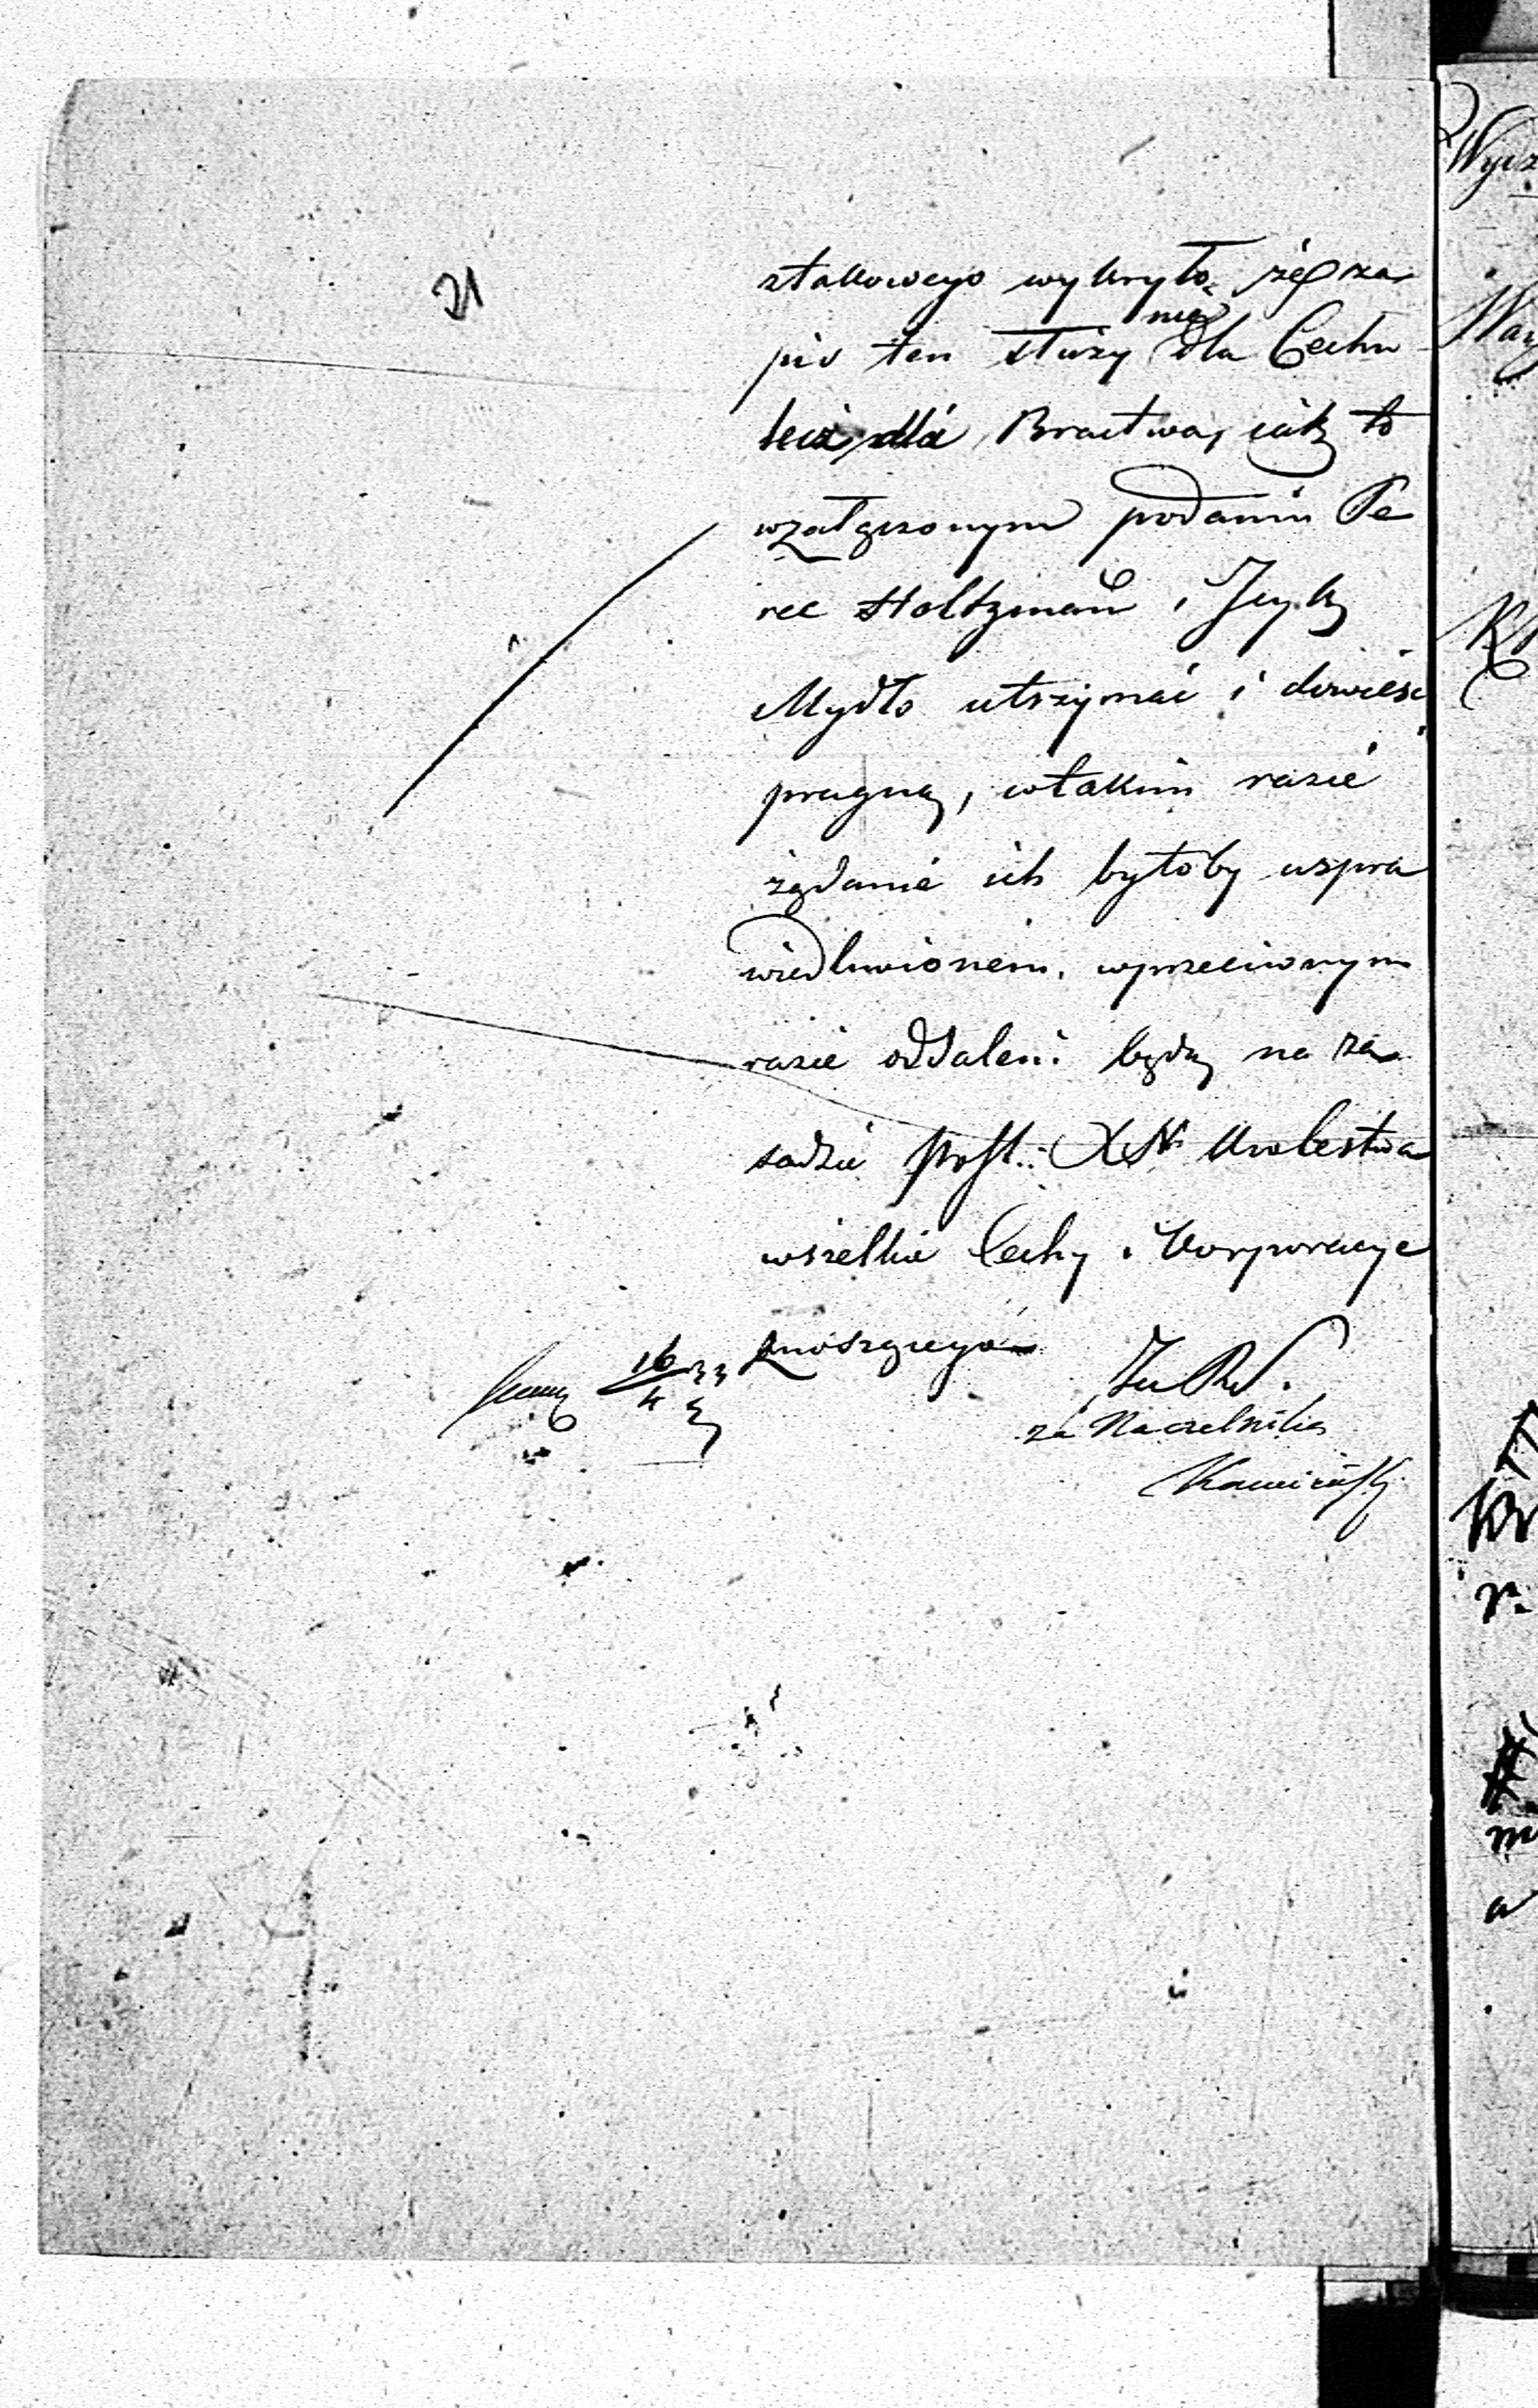 21
z takowego wykryło, że za
pis ten służy nie dla Cechu
lecz dla Bractwa, iak to
w załączonym podaniu Pe
rec Holtzman i Icyk
Mydło utrzymać i dowieść
pragną, w takim razie
żądanie ich byłoby uspra
wiedliwionem, w przeciwnym
razie oddaleni będą na za
sadzie Post: XN Królestwa
wszelkie Cechy i Korporacye
znoszącego
16/4 33
za Naczelnika
Kamiński